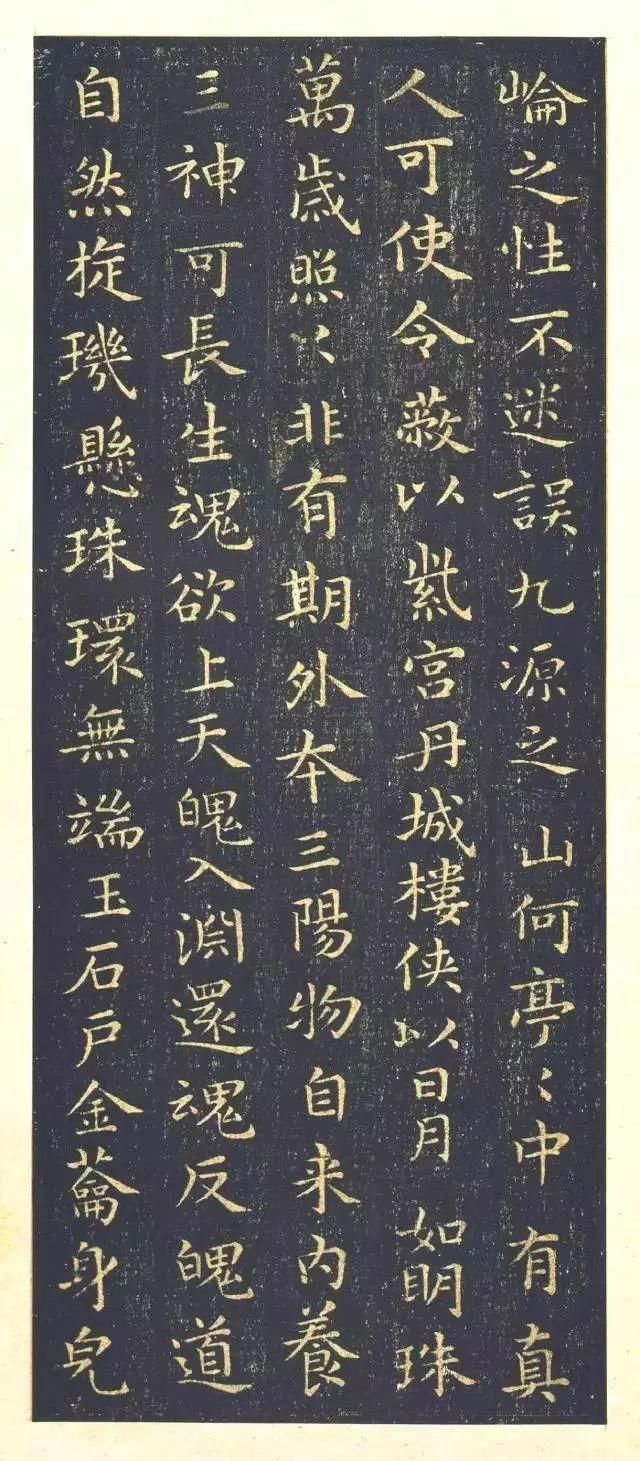 崘之性不迷誤九源之山何亭〻中有真
人可使令蔽以紫宮丹城樓俠以日月如眀珠
萬歲照以非有期外夲三陽物自来内養
三神可長生魂欲上天魄入淵還魂反魄道
自然㫌璣懸珠環無端玉石戶金蘥身皃